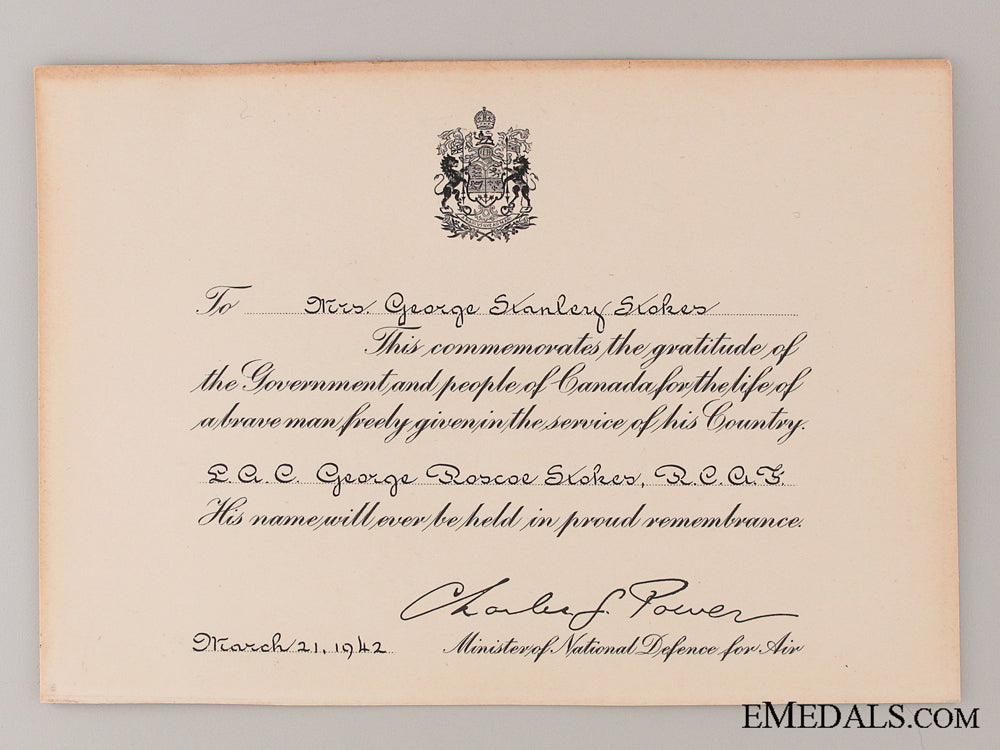 To Mrs. George Stanley Stokes
This commemorates the gratitude of
the Government and people of Canada for the life of
a brave man freely given in the service of his Country.
L.A.C. George Roscoe Stokes, R.C.A.F.
His name will ever be held in proud remembrance.
Charles G. Power
March 21, 1942 Minister of National Defence for Air
EMEDALS.COM